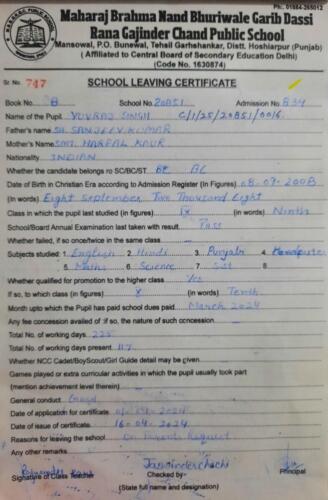 Ph.: 01884-265012
Maharaj Brahma Nand Bhuriwale Garib Dassi
Rana Gajinder Chand Public School
Mansowal, P.O. Bunewal, Tehsil Garhshankar, Distt. Hoshiarpur (Punjab)
( Affiliated to Central Board of Secondary Education Delhi)
(Code No. 1630874)
Sr. No. 747 SCHOOL LEAVING CERTIFICATE
Book No. 8 School No. 20851 Admission No. 834
Name of the Pupil YUVRAJ SINGH C/1/25/20851/0016
Father's name SH. SANJEEV KUMAR
Mother's Name SMT. HARPAL KAUR
Nationality INDIAN
Whether the candidate belongs ro SC/BC/ST BC BC
Date of Birth in Christian Era according to Admission Register (In Figures) 08-09-2008
(In words) Eight September Two Thousand Eight
Class in which the pupil last studied (in figures) IX (in words) Ninth
School/Board Annual Examination last taken with result Pass
Whether failed, if so once/twice in the same class
Subjects studied: 1. English 2. Hindi 3. Punjabi 4. Computer
5. Maths 6. Science 7. Sst 8.
Whether qualified for promotion to the higher class Yes
If so, to which class (in figures) X (in words) Tenth
Month upto which the Pupil has paid school dues paid March 2024
Any fee concession availed of : if so, the nature of such concession
Total No. of working days 225
Total No. of working days present 117
Whether NCC Cadet/BoyScout/Girl Guide detail may be given
Games played or extra curricular activities in which the pupil usually took part
(mention achievement level therein)
General conduct Good
Date of application for certificate 2024
Date of issue of certificate 16-04-2024
Reasons for leaving the school On Parents Request
Any other remarks
Signature of Class Teacher Checked by Principal
(State full name and designation)